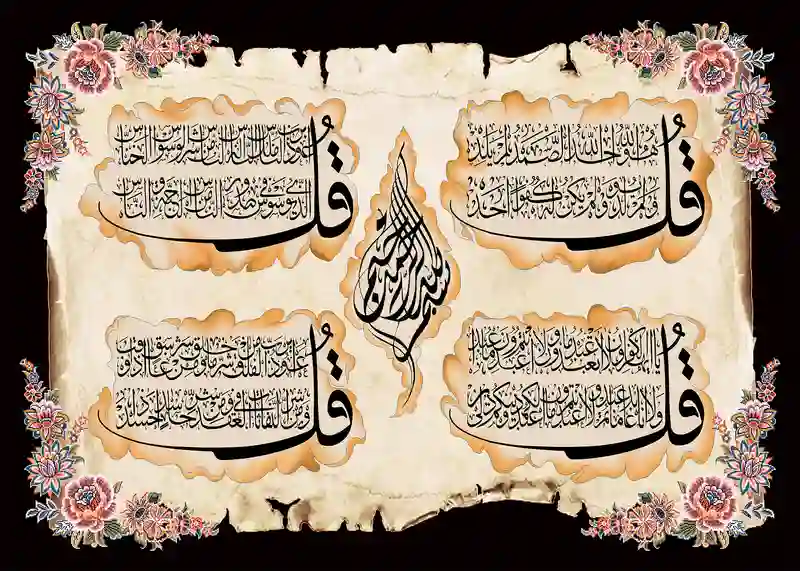 قُل هُوَ اللهُ احَدٌ اللهُ الصَّمَدُ لَم يَلِد
وَلَم يُولَد وَلَم يَكُن لَهُ كُفُوًا احَدٌ
بسم الله الرحمن الرحيم
قُل اعوذ برب الناس ملك الناس اله الناس من شر الوسواس الخناس
الذي يوسوس في صدور الناس من الجنة و الناس
قُل يا ايها الكافرون لا اعبد ما تعبدون ولا انتم عابدون ما اعبد
ولا انا عابد ما عبدتم ولا انتم عابدون ما اعبد لكم دينكم ولي دين
قُل اعوذ برب الفلق من شر ما خلق ومن شر غاسق اذا وقب
ومن شر النفاثات في العقد ومن شر حاسد اذا حسد